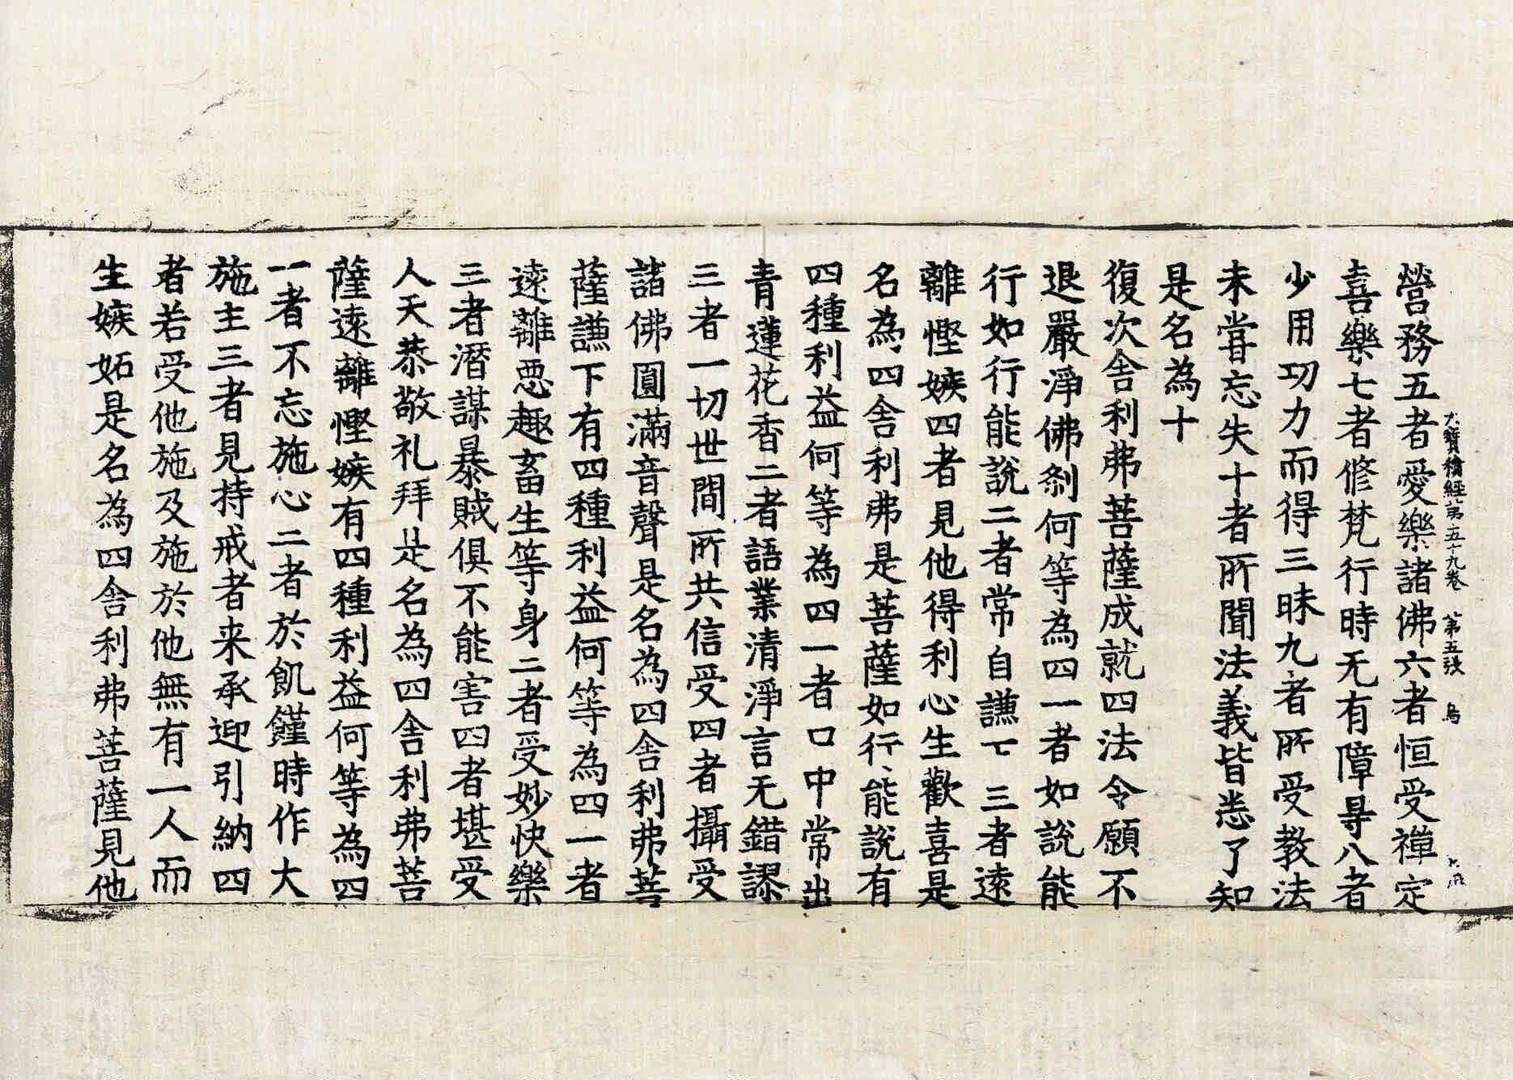 大寶積經第五十九卷 第五張 鳥
營務五者愛樂諸佛六者恒受禪定
喜樂七者修梵行時无有障㝵八者
少用功力而得三昧九者所受教法
未嘗忘失十者所聞法義皆悉了知
是名為十
復次舍利弗菩薩成就四法令願不
退嚴淨佛剎何等為四一者如說能
行如行能說二者常自謙下三者遠
離慳嫉四者見他得利心生歡喜是
名為四舍利弗是菩薩如行能說有
四種利益何等為四一者口中常出
青蓮花香二者語業清淨言无錯謬
三者一切世間所共信受四者攝受
諸佛圓滿音聲是名為四舍利弗菩
薩謙下有四種利益何等為四一者
遠離惡趣畜生等身二者受妙快樂
三者潛謀暴賊俱不能害四者堪受
人天恭敬礼拜是名為四舍利弗菩
薩遠離慳嫉有四種利益何等為四
一者不忘施心二者於飢饉時作大
施主三者見持戒者来承迎引納四
者若受他施及施於他無有一人而
生嫉妬是名為四舍利弗菩薩見他